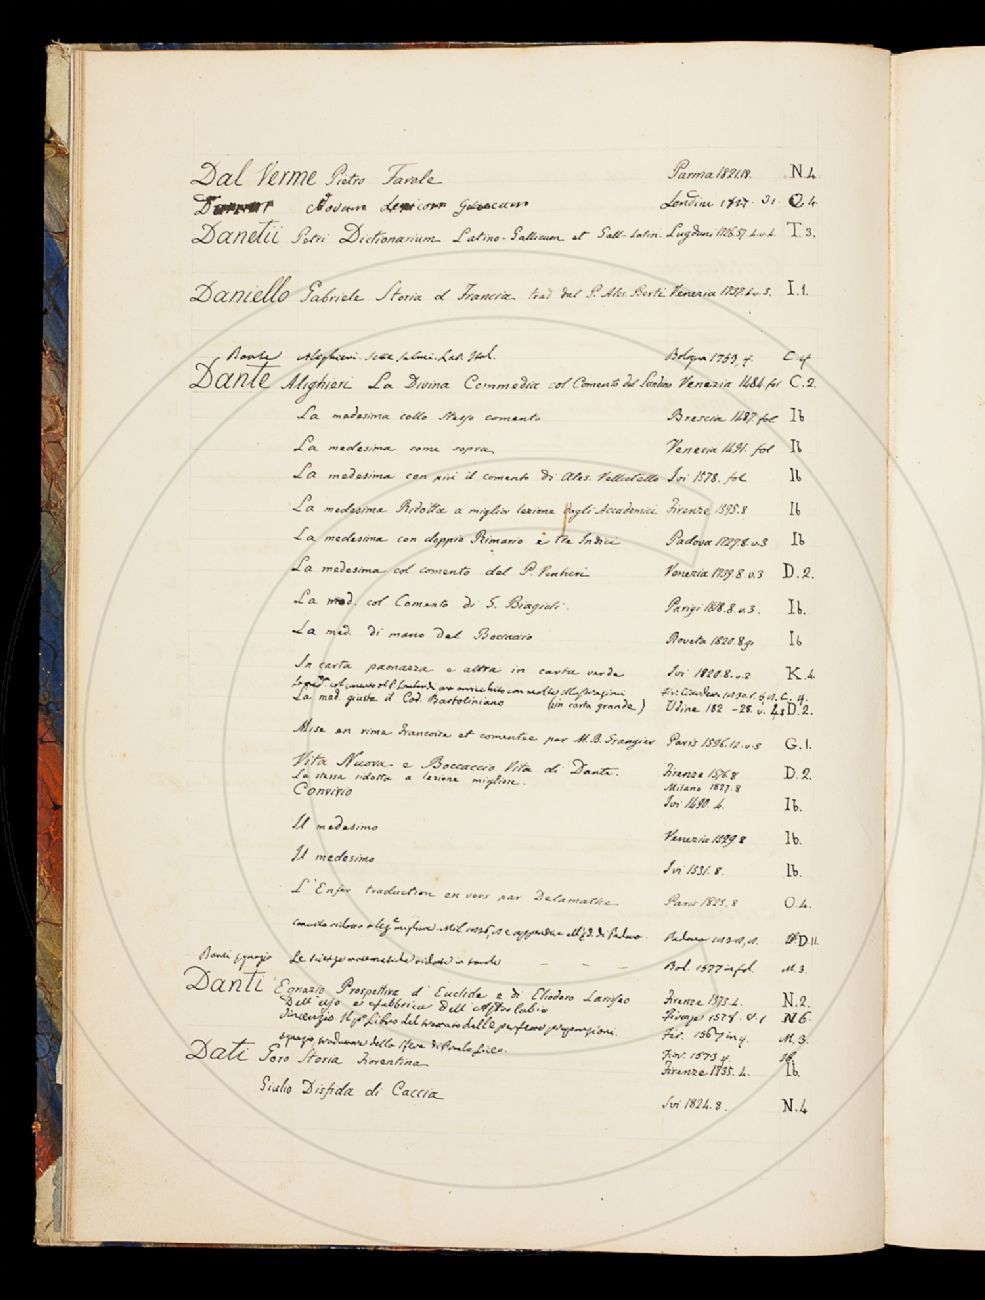 Dal Verme Pietro Favole Parma 1821.18. N.4
Novum Lexicon Graecum Londini 17 Q.4
Danetii Petri Dictionarium Latino-Gallicum et Gall-Latin. Lugduni 1726.37.4.v.2. T.3.
Daniello Gabriele Storia d Francia trad dal P. Ales. Berti Venezia 1737.4.v.3. I.1.
Dante Alighieri Sette Salmi. Lat. Ital. Bologna 1753. 4. C.4
Dante Alighieri La Divina Commedia col Comento del Landino Venezia 1484 fol C.2.
La medesima collo stesso comento Brescia 1487. fol Ib
La medesima come sopra Venezia 1491. fol Ib
La medesima con più il comento di Ales. Vellutello Ivi 1578. fol Ib
La medesima Ridotta a miglior lezione dagli Accademici Firenze 1595.8 Ib
La medesima con doppio Rimario e tre Indici Padova 1727.8.v.3 Ib
La medesima col comento del P. Venturi Venezia 1739.8.v.3 D.2.
La med. col Comento di G. Biagioli. Parigi 1818.8.v.3. Ib.
La med. di mano del Boccacio Roveta 1820.8 gr Ib
In carta paonazza e altra in carta verde Ivi 1820.8.v.2 K.4
La med. col comento del P. Lombardi ora arricchito con molte illustrazioni C. 4.
La med. giusta il Cod. Bartoliniano (in carta grande) Udine 182 -28. v. D.2.
Mise en rime francoise et comentee par M.B. Grangier Paris 1596.12.v.3 G.1.
Vita Nuova e Boccaccio Vita di Dante. Firenze 1576 8 D.2.
La stessa ridotta a lezione migliore. Milano 1827.8
Convivio Ivi 1490. 4. Ib.
Il medesimo Venezia 1529 8 Ib.
Il medesimo Ivi 1531.8. Ib.
L'Enfer traduction en vers par Delamathe Paris 1823.8 O.4.
Convito ridotto a lez.e migliore. Mil. 1826, 8 e appendice di Padova. Padova D.II
Danti Egnazio Le scienze matematiche ridotte in tavole - - - Bol. 1577 in fol. M.3.
Danti Egnazio Prospettiva d'Euclide e di Eliodoro Larisseo Firenze 1573.4. N.2.
Dell'uso e fabbrica dell'Astrolabio Firenze 157 N 6
Vincenzio Il p.o Libro del trattato delle perfette proporzioni. Fir. 1567 in 4. M.3.
Egnazio traduzione della Sfera di Proclo Liceo. Fior. 1573 4. ib
Dati Goro Storia Fiorentina Firenze 1835. 4. Ib.
Giulio Disfida di Caccia Ivi 1824.8. N.4